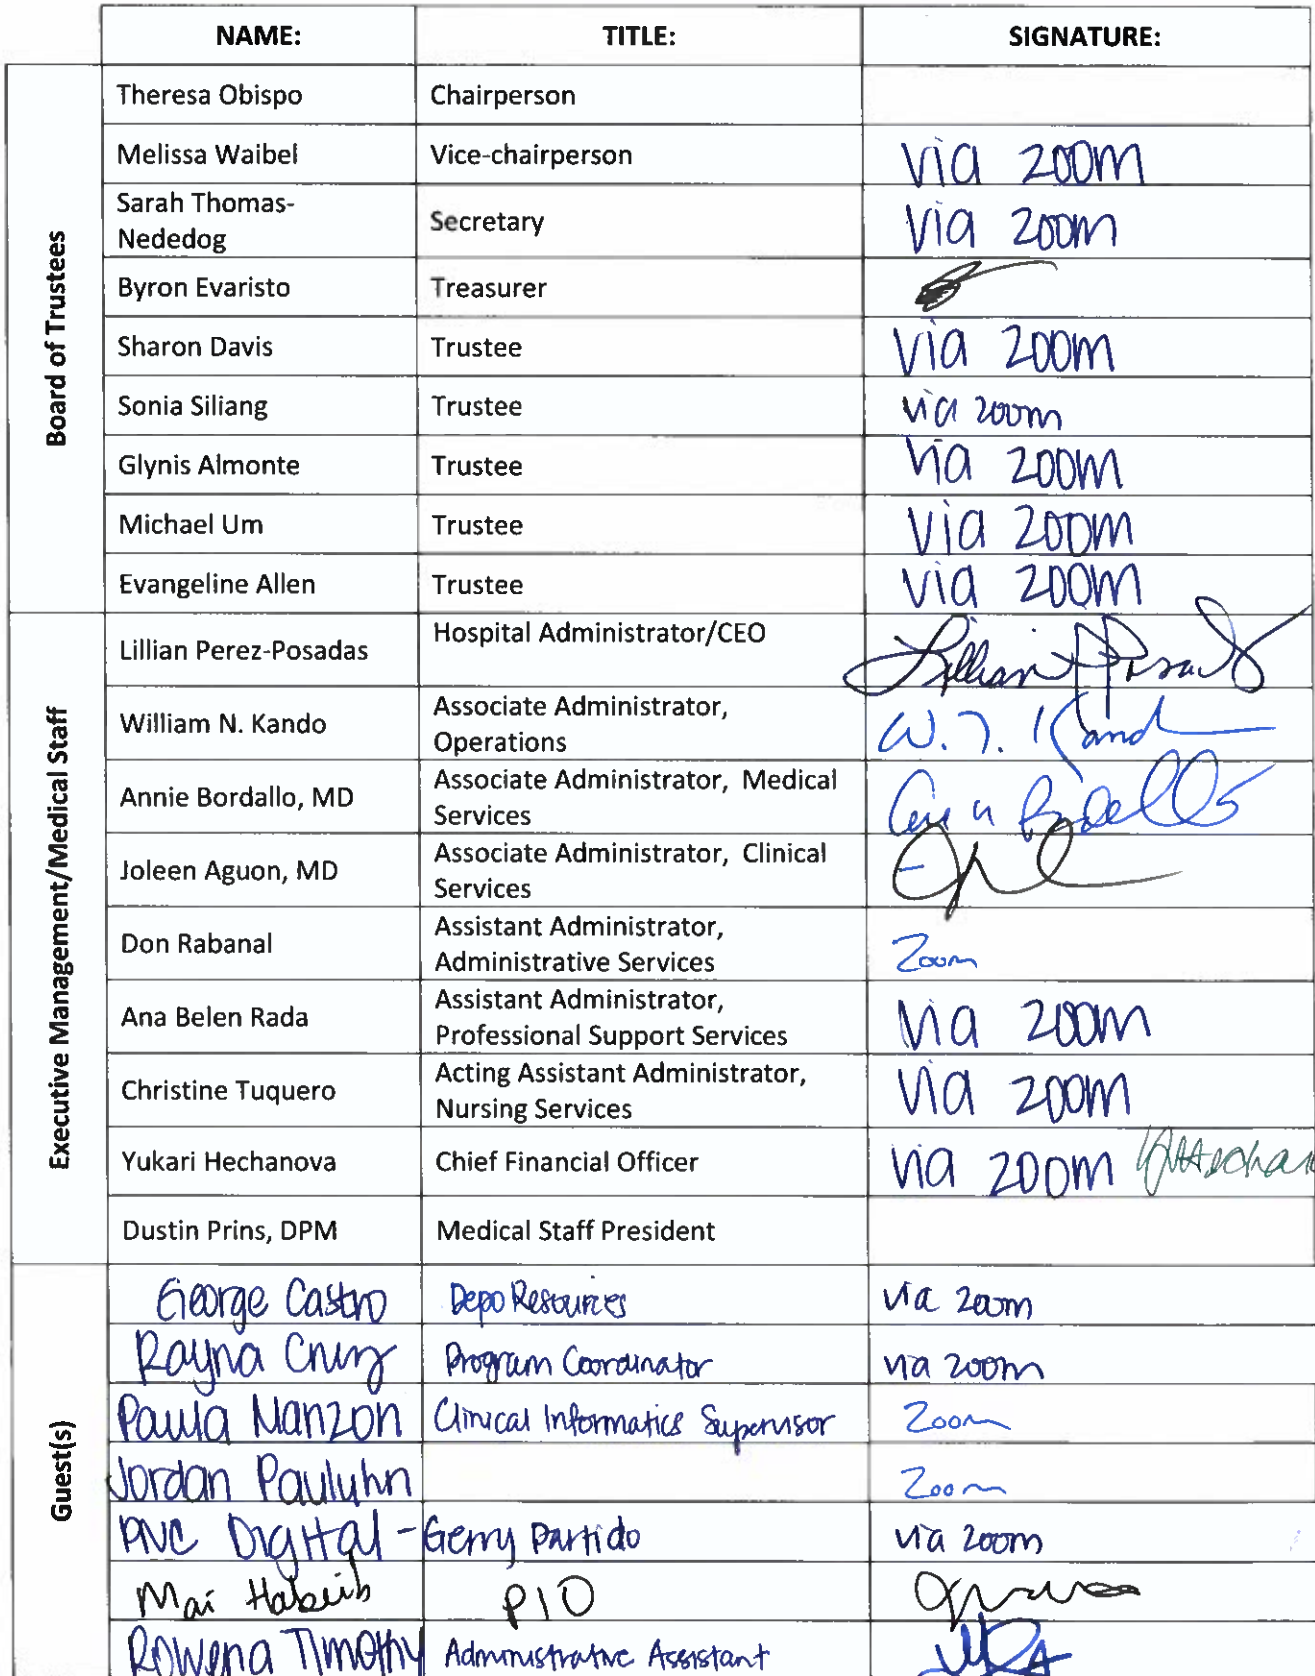 NAME: TITLE: SIGNATURE:
Board of Trustees
Theresa Obispo Chairperson
Melissa Waibel Vice-chairperson via zoom
Sarah Thomas-
Nededog Secretary via zoom
Byron Evaristo Treasurer
Sharon Davis Trustee via zoom
Sonia Siliang Trustee via zoom
Glynis Almonte Trustee via zoom
Michael Um Trustee via zoom
Evangeline Allen Trustee via zoom
Executive Management/Medical Staff
Lillian Perez-Posadas Hospital Administrator/CEO
William N. Kando Associate Administrator,
Operations
Annie Bordallo, MD Associate Administrator, Medical
Services
Joleen Aguon, MD Associate Administrator, Clinical
Services
Don Rabanal Assistant Administrator,
Administrative Services Zoom
Ana Belen Rada Assistant Administrator,
Professional Support Services via zoom
Christine Tuquero Acting Assistant Administrator,
Nursing Services via zoom
Yukari Hechanova Chief Financial Officer via zoom
Dustin Prins, DPM Medical Staff President
Guest(s)
George Castro Depo Resources via zoom
Rayna Cruz Program Coordinator via zoom
Paula Manzon Clinical Informatics Supervisor Zoom
Jordan Pauluhn Zoom
PNC Digital - Gerry Partido via zoom
Mai Habeib PIO
Rowena Timothy Administrative Assistant